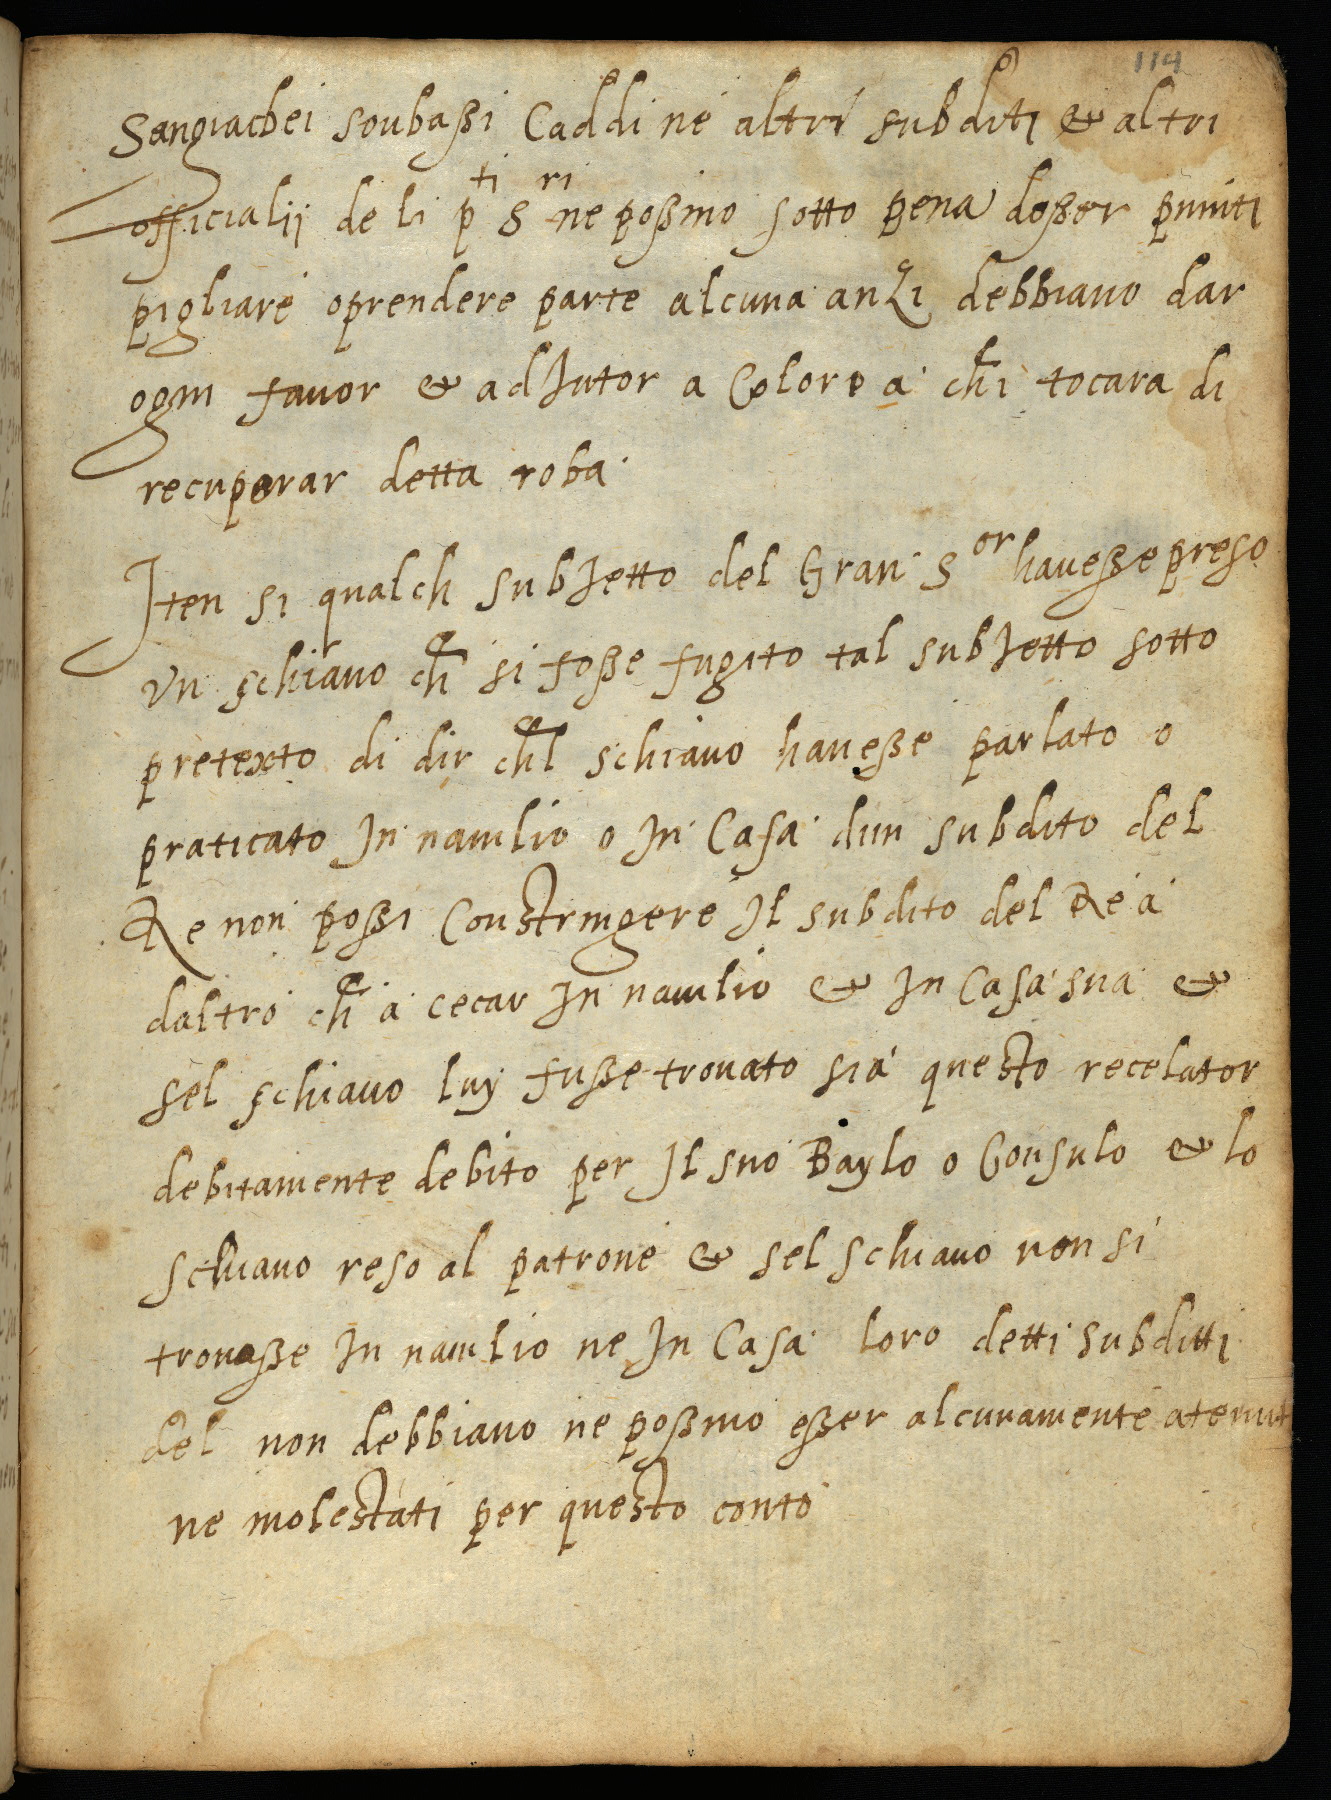 114
Sangiacbei soubaßi Caddi ne altri subditi & altri
officialij de li p^ti S^ri ne poßino sotto pena deßer puniti
pigliare oprendere parte alcuna anzi debbiano dar
ogni favor & adJutor a Coloro a chi tocara di
recuperar detta roba
Iten si qualch subJetto del Gran S^or haveße preso
Un schiavo ch si foße fugito tal subJetto sotto
pretexto di dir chl schiavo haveße parlato o
praticato In navilio o In Casa dun subdito del
Re non poßi Constringere Il subdito del Re a
daltro ch a cecar In navilio & In Casa sua &
sel schiavo luy fuße trovato sia questo recelator
debitamente debito per Il suo Baylo o Consulo & lo
schiavo reso al patrone & sel schiavo non si
trovaße In navilio ne In Casa loro detti subditti
del non debbiano ne poßino eßer alcunamente atenuti
ne molestati per questo conto